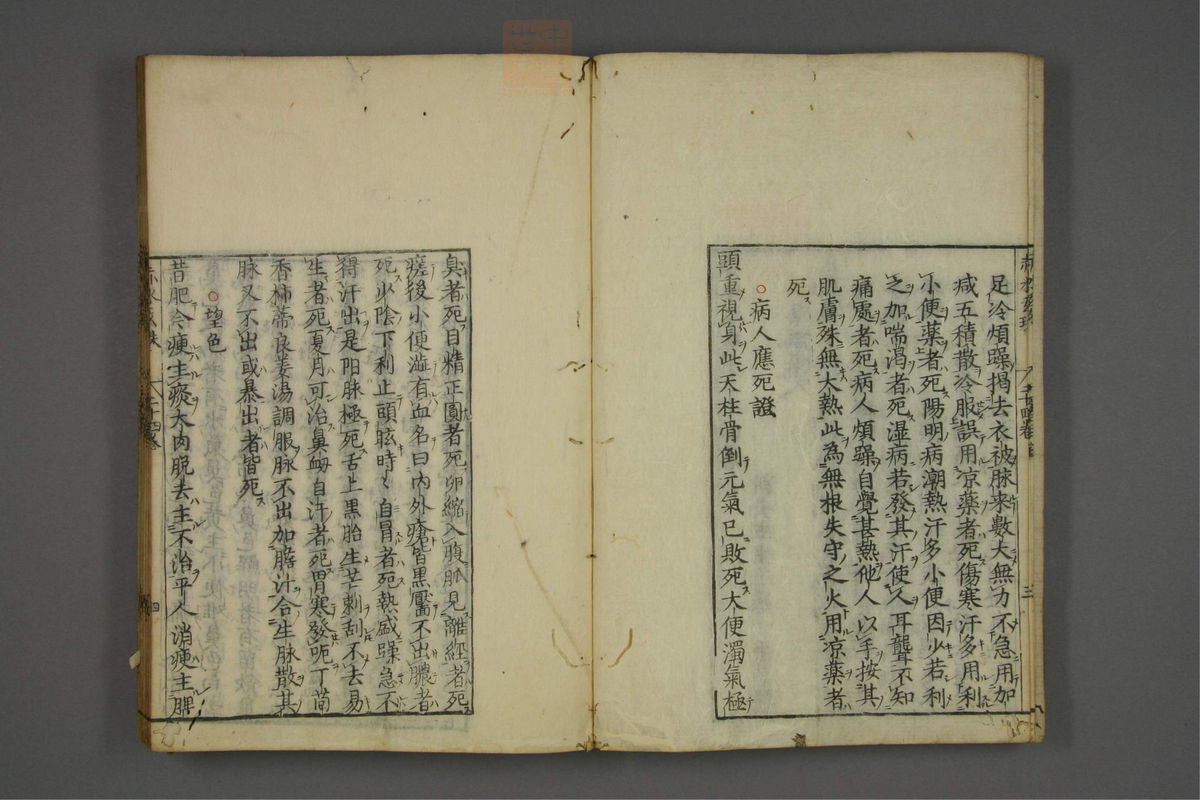 足冷煩躁揭去衣被脉来數大無力不急用加
减五積散冷服誤用凉藥者死傷寒汗多用利
小便藥者死陽明病潮熱汗多小便因少若利
之加喘渴者死湿病若發其汗使人耳聾不知
痛處者死病人煩躁自覺甚熱他人以手按其
肌膚殊無大熱此為無根失守之火用凉藥者
死
○病人應死證
頭重視身此天柱骨倒元氣已敗死大便濁氣極
臭者死目精正圓者死卵縮入腹脉見離經者死
瘥後小便澁有血名曰內外瘡皆黒黶不出膿者
死少陰下利止頭眩時〻自冒者死熱盛躁急不
得汗出是阳脉極死舌上黒胎生芒刺刮不去易
生者死夏月可治鼻衄自汗者死胃寒發呃丁萳
香柿蒂良姜湯調服脉不出加膽汁合生脉散其
脉又不出或暴出者皆死
○望色
昔肥今瘦主痰大肉脱去主不治平人消瘦主脾